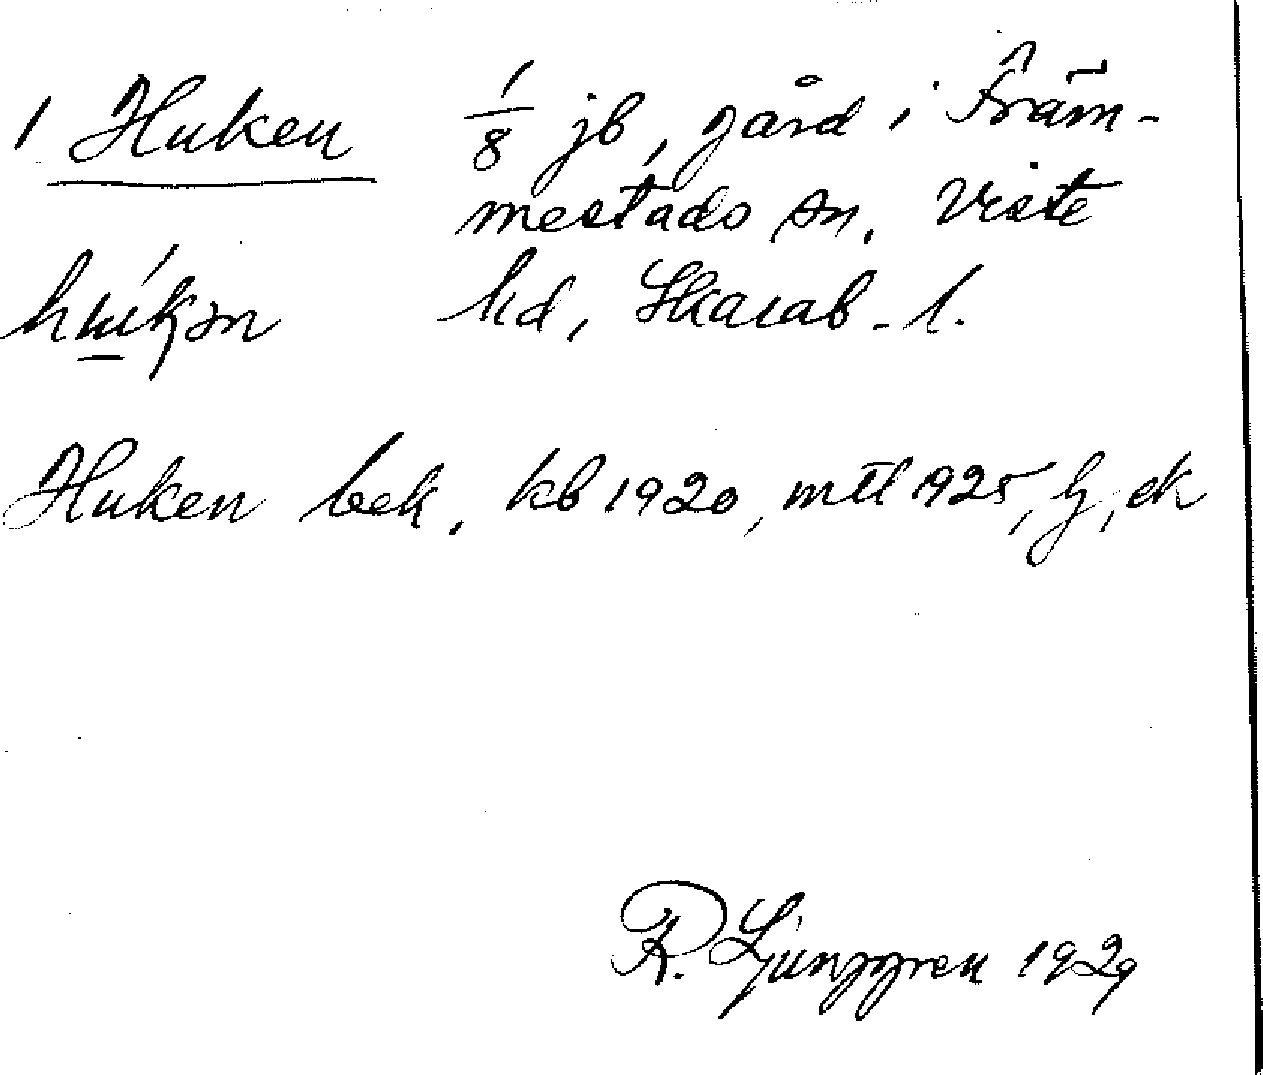 1 Huken 1/8 jb, gård i Främ-
mestads sn, Viste
hd, Skarab. l.
Huken bek. kb 1920, mtl 1925, lj, ek
R. Ljunggren 1929